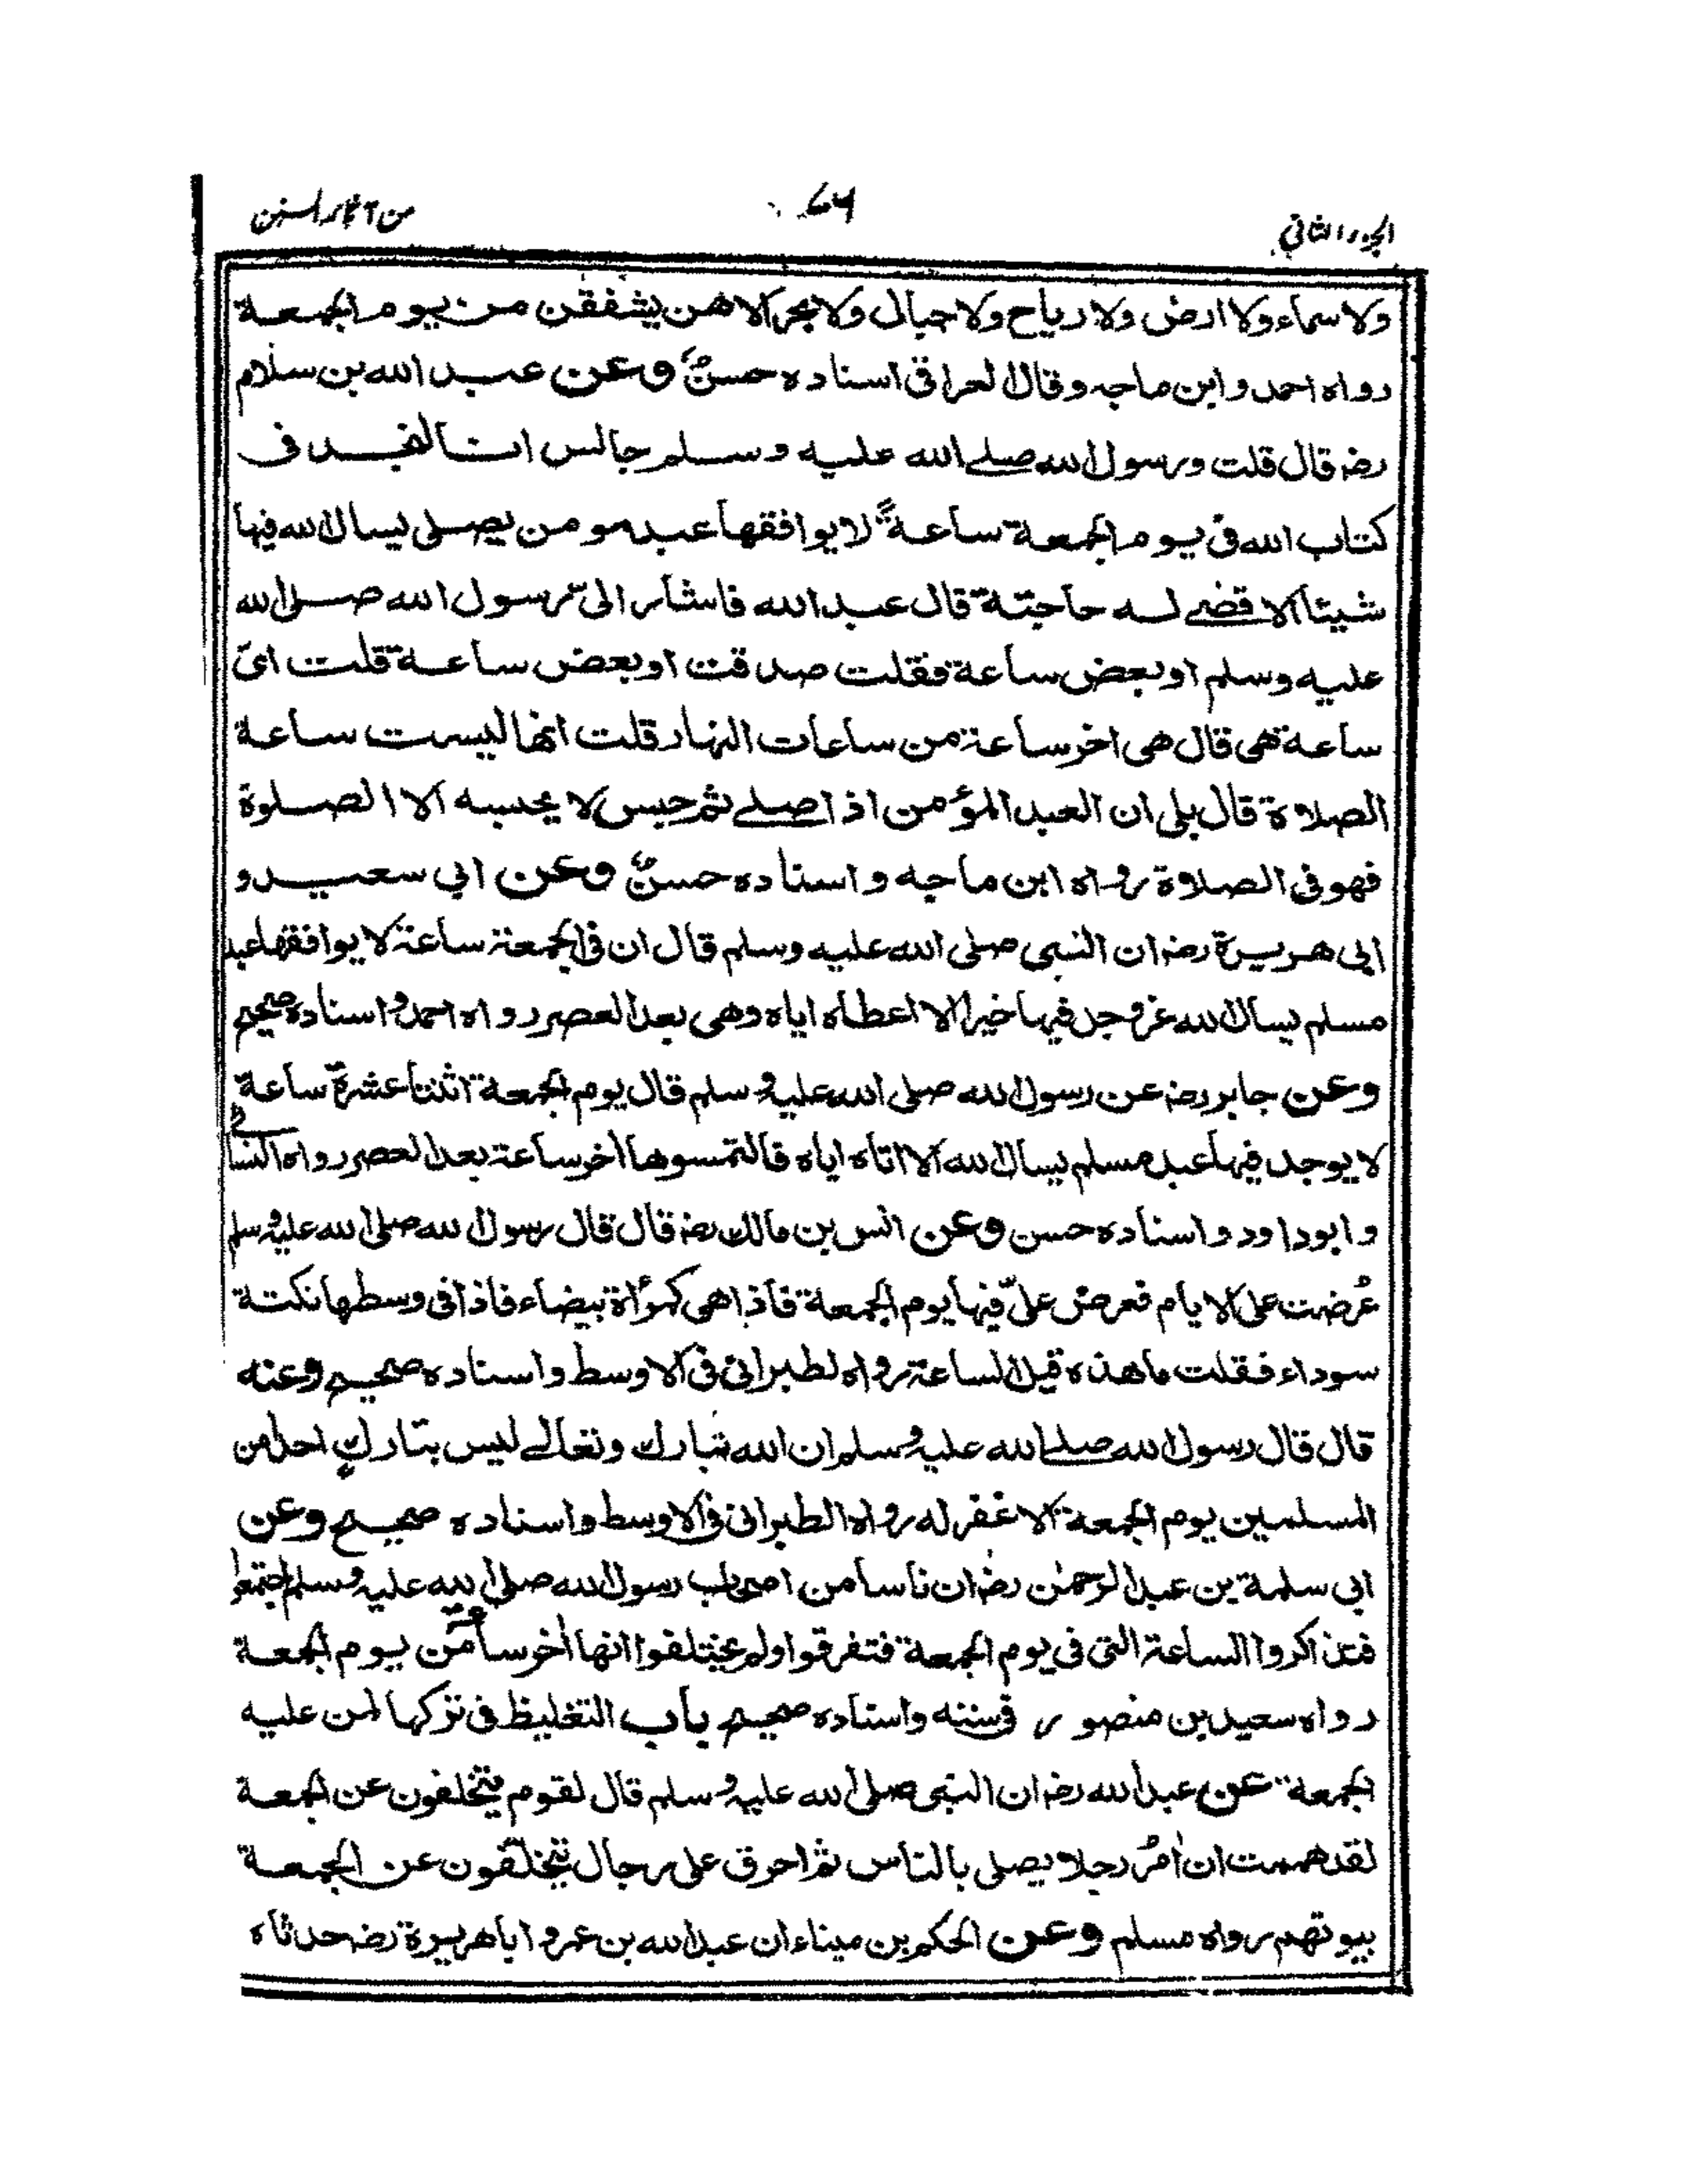 الجزء الثاني
من آثار السنن
ولا سماء ولا ارض ولا رياح ولا جبال ولا بحر الا هن يشفقن من يوم الجمعة
رواه احمد وابن ماجه وقال العراقي اسناده حسن وعن عبد الله بن سلام
رضـ قال قلت ورسول الله صلے الله عليه وسلم جالس انا لنجد في
كتاب الله في يوم الجمعة ساعة لا يوافقها عبد مومن يصلى يسال الله فيها
شيئا الا قضے له حاجته قال عبد الله فاشار الى رسول الله صلى الله
عليه وسلم او بعض ساعة فقلت صدقت او بعض ساعة قلت اى
ساعة هى قال هى اخر ساعة من ساعات النهار قلت انها ليست ساعة
الصلاة قال بلى ان العبد المؤمن اذا صلے ثم جلس لا يحبسه الا الصلوة
فهو فى الصلاة رواه ابن ماجه واسناده حسن وعن ابي سعيد و
ابى هريرة رضـ ان النبى صلى الله عليه وسلم قال ان فى الجمعة ساعة لا يوافقها عبد
مسلم يسال الله عز وجل فيها خيرا الا اعطاه اياه وهى بعد العصر رواه احمد واسناده صحيح
وعن جابر رضـ عن رسول الله صلى الله عليه وسلم قال يوم الجمعة اثنتا عشرة ساعة
لا يوجد فيها عبد مسلم يسال الله الا اتاه اياه فالتمسوها اخر ساعة بعد العصر رواه النسائے
وابو داود واسناده حسن وعن انس بن مالك رضـ قال قال رسول الله صلى الله عليه وسلم
عُرضت على الايام فعرض علىّ فيها يوم الجمعة فاذا هى كمرأة بيضاء فاذا فى وسطها نكتة
سوداء فقلت ما هذه قيل الساعة رواه الطبرانى فى الاوسط واسناده صحيح وعنه
قال قال رسول الله صلے الله عليه وسلم ان الله تبارك وتعالے ليس بتارك احدا من
المسلمين يوم الجمعة الا غفر له رواه الطبرانى فى الاوسط واسناده صحيح وعن
ابى سلمة بن عبد الرحمٰن رضـ ان ناسا من اصحاب رسول الله صلى الله عليه وسلم اجتمعوا
فتذاكروا الساعة التى فى يوم الجمعة فتفرقوا ولم يختلفوا انها اخر ساعة من يوم الجمعة
رواه سعيد بن منصور فى سننه واسناده صحيح باب التغليظ فى تركها لمن عليه
الجمعة عن عبد الله رضـ ان النبى صلى الله عليه وسلم قال لقوم يتخلفون عن الجمعة
لقد هممت ان اٰمُر رجلا يصلى بالناس ثم احرق على رجال يتخلفون عن الجمعة
بيوتهم رواه مسلم وعن الحكم بن ميناء ان عبد الله بن عمر و ابا هريرة رضـ حدثاه